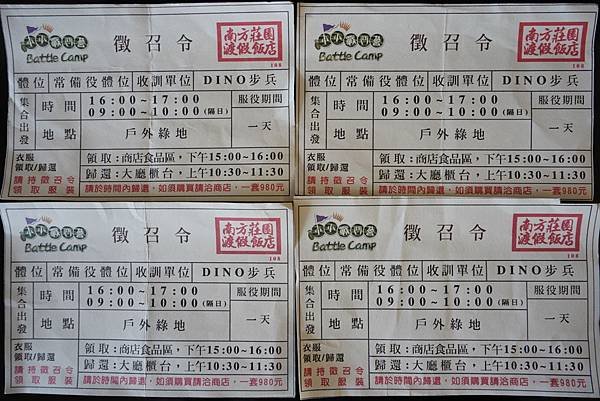 小小戰鬥營
Battle Camp
徵召令
南方莊園
渡假飯店
108
體位 常備役體位 收訓單位 DINO步兵
集合出發 時間 16:00~17:00
09:00~10:00(隔日) 服役期間
地點 戶外綠地 一天
衣服
領取/歸還 領取:商店食品區,下午15:00~16:00
歸還:大廳櫃台,上午10:30~11:30
請持徵召令
領取服裝 請於時間內歸還,如須購買請洽商店,一套980元
小小戰鬥營
Battle Camp
徵召令
南方莊園
渡假飯店
108
體位 常備役體位 收訓單位 DINO步兵
集合出發 時間 16:00~17:00
09:00~10:00(隔日) 服役期間
地點 戶外綠地 一天
衣服
領取/歸還 領取:商店食品區,下午15:00~16:00
歸還:大廳櫃台,上午10:30~11:30
請持徵召令
領取服裝 請於時間內歸還,如須購買請洽商店,一套980元
小小戰鬥營
Battle Camp
徵召令
南方莊園
渡假飯店
108
體位 常備役體位 收訓單位 DINO步兵
集合出發 時間 16:00~17:00
09:00~10:00(隔日) 服役期間
地點 戶外綠地 一天
衣服
領取/歸還 領取:商店食品區,下午15:00~16:00
歸還:大廳櫃台,上午10:30~11:30
請持徵召令
領取服裝 請於時間內歸還,如須購買請洽商店,一套980元
小小戰鬥營
Battle Camp
徵召令
南方莊園
渡假飯店
108
體位 常備役體位 收訓單位 DINO步兵
集合出發 時間 16:00~17:00
09:00~10:00(隔日) 服役期間
地點 戶外綠地 一天
衣服
領取/歸還 領取:商店食品區,下午15:00~16:00
歸還:大廳櫃台,上午10:30~11:30
請持徵召令
領取服裝 請於時間內歸還,如須購買請洽商店,一套980元